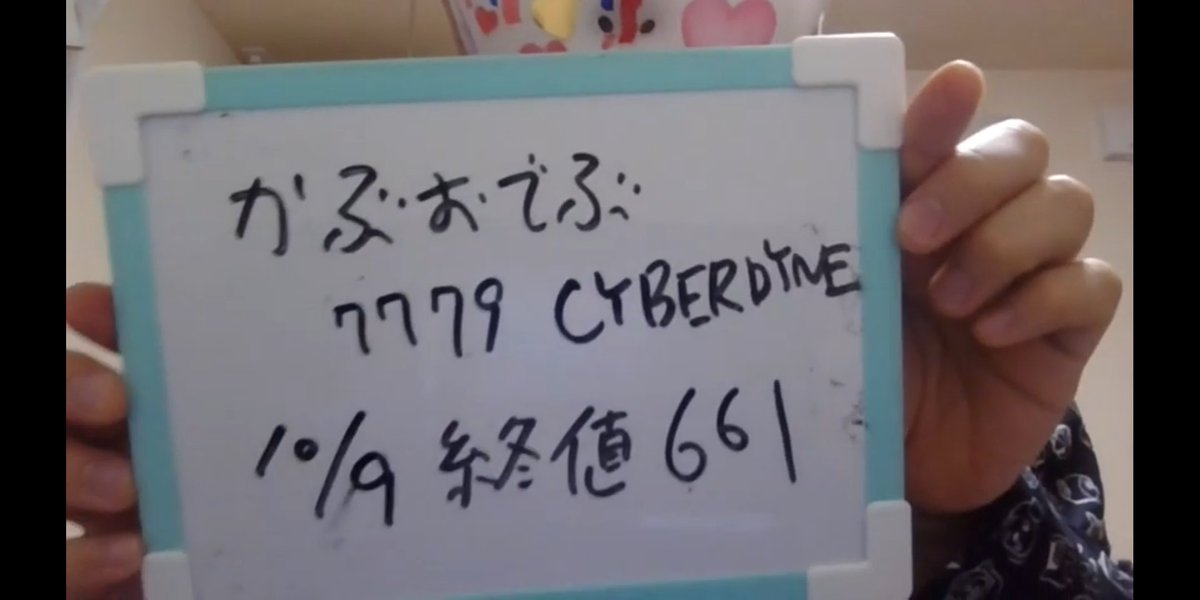 かぶおでぶ
7779 CYBERDYNE
10/9 終値 661